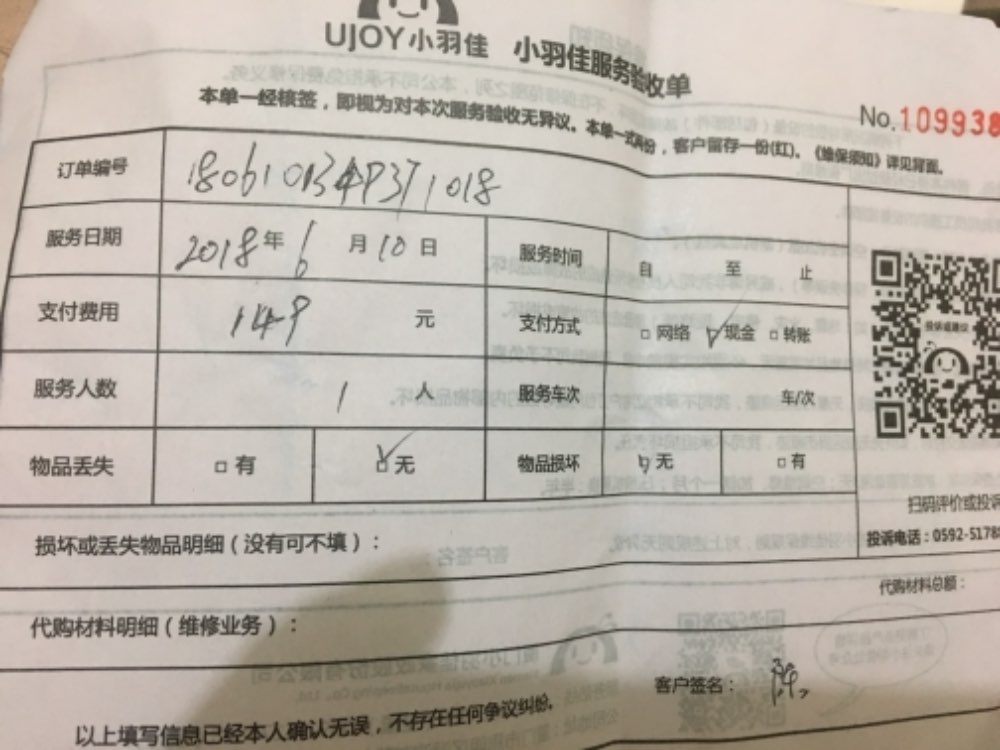 UJOY小羽佳 小羽佳服务验收单
本单一经核签，即视为对本次服务验收无异议。本单一式两份，客户留存一份(红)。《维保须知》详见背面。
No.109938
订单编号
服务日期 2018年6月10日 服务时间 自 至 止
支付费用 149 元 支付方式 □网络 ☑现金 □转账
服务人数 1 人 服务车次 车/次
物品丢失 □有 ☑无 物品损坏 ☑无 □有
投诉或建议
扫码评价或投诉
投诉电话：0592-5178
损坏或丢失物品明细（没有可不填）：
代购材料总额：
代购材料明细（维修业务）：
客户签名：
以上填写信息已经本人确认无误，不存在任何争议纠纷。